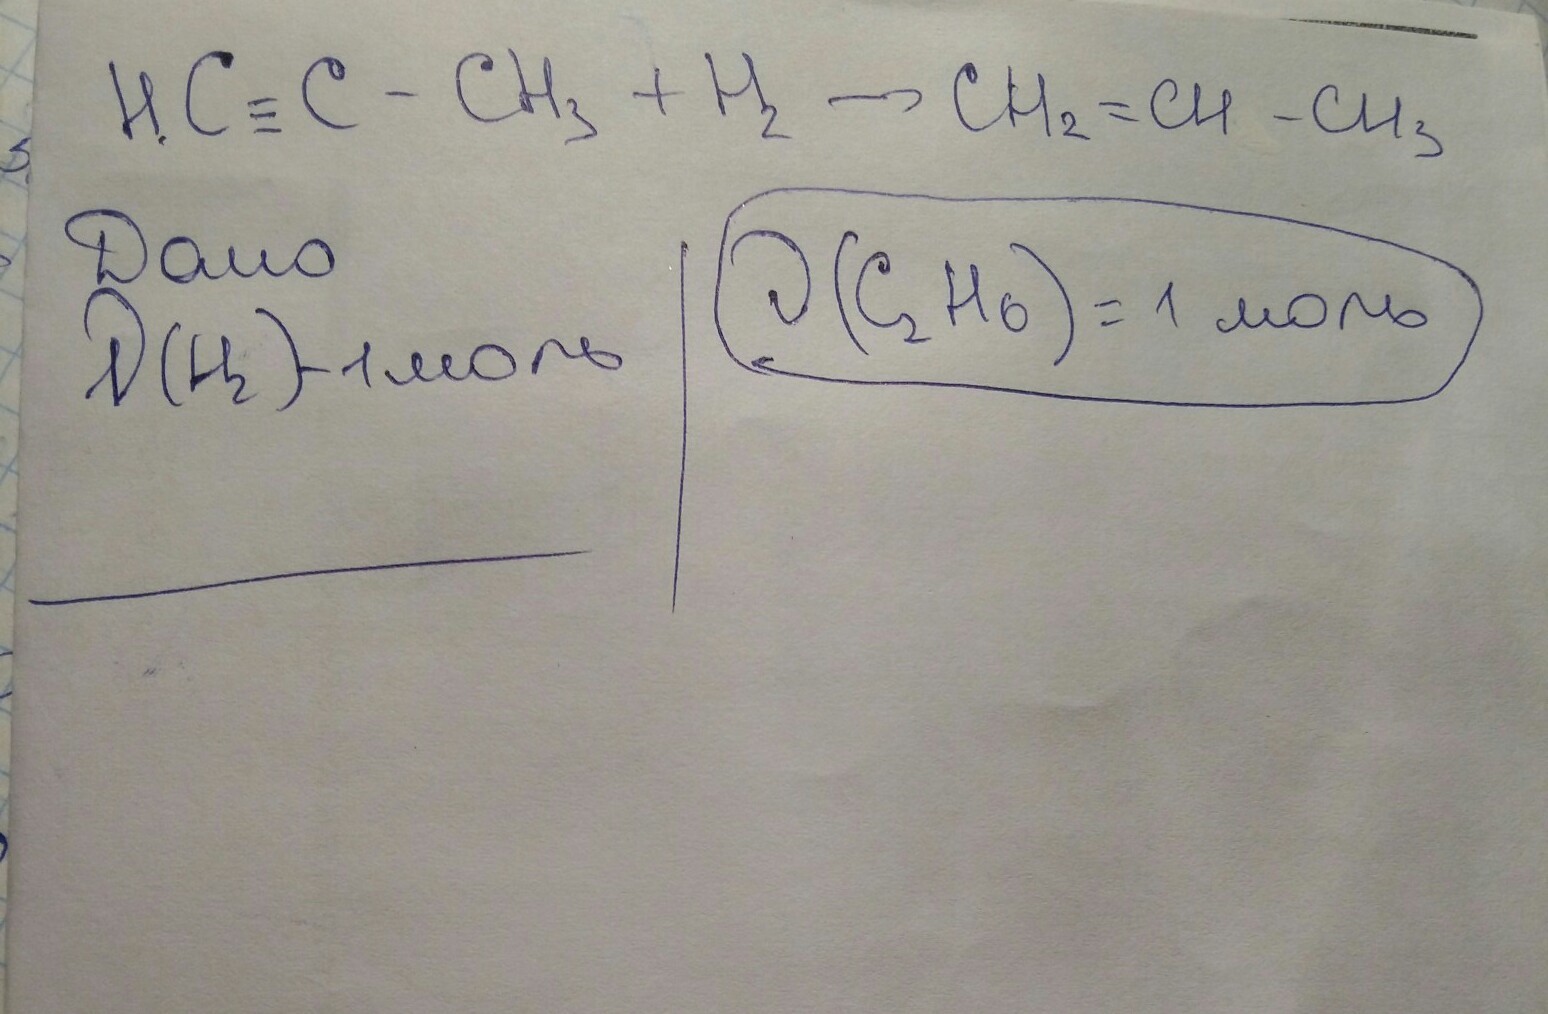 HC≡C-CH₃ + H₂ → CH₂=CH-CH₃
Дано
ν(H₂)-1моль
ν(C₂H₆)=1 моль